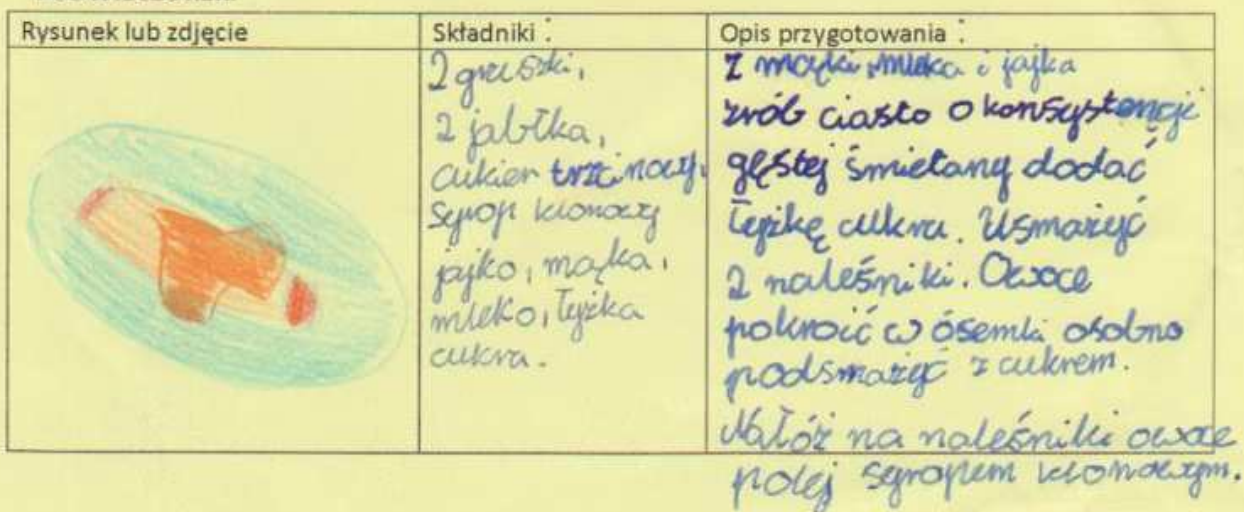 Rysunek lub zdjęcie
Składniki :
2 gruszki,
2 jabłka,
cukier trzcinowy,
syrop klonowy
jajko, mąka,
mleko, łyżka
cukru.
Opis przygotowania :
Z mąki, mleka i jajka
zrób ciasto o konsystencji
gęstej śmietany dodać
łyżkę cukru. Usmażyć
2 naleśniki. Owoce
pokroić w ósemki osobno
podsmażyć z cukrem.
Nałóż na naleśniki owoce
polej syropem klonowym.